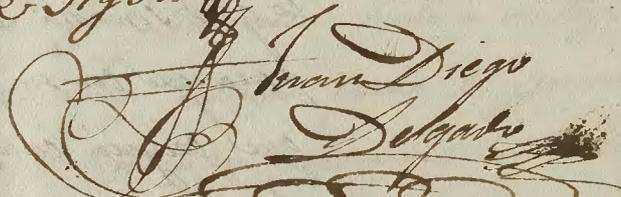 Juan Diego
Delgado